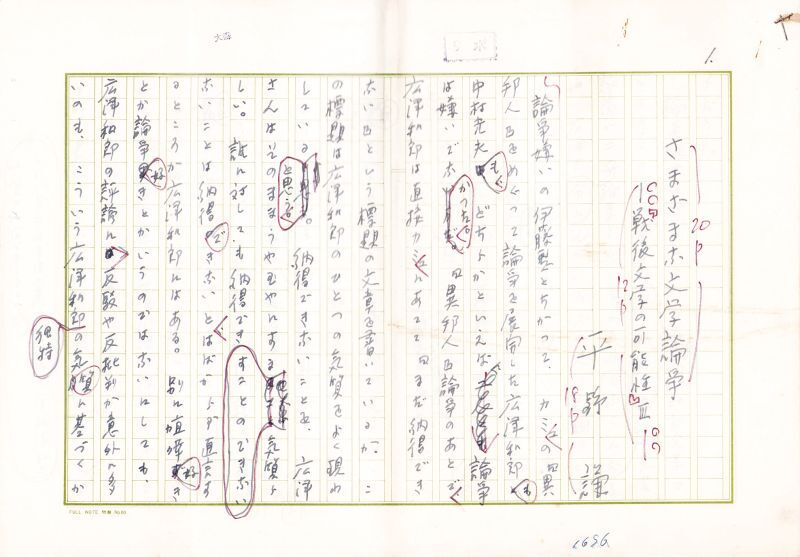 さまざまな文学論争
戦後文学の可能性Ⅲ
平野 謙
論争嫌いの伊藤整とちがって、カミュの異
邦人をめぐって論争を展開した広津和郎も
中村光夫も、どちらかといえば論争
は嫌いでなかった。『異邦人』論争のあとで
広津和郎は直接カミュにあてて『まだ納得でき
ない』という標題の文章を書いているが、こ
の標題は広津和郎のひとつの気質をよく現わ
していると思う。納得できないことを、広津
さんはそのままうやむやにする気質ら
すことのできない
しい。誰に対しても納得でき
ないことは納得できないとはばからず直言す
るところが広津和郎にはある。別に喧嘩好き
とか論争好きとかいうのではないにしても、
広津和郎の評論に反駁や反批判が意外に多
いのも、こういう広津和郎の気質に基づくか
独特
20P
12P
18P
1.
6696.
FULL NOTE 特製 No.80